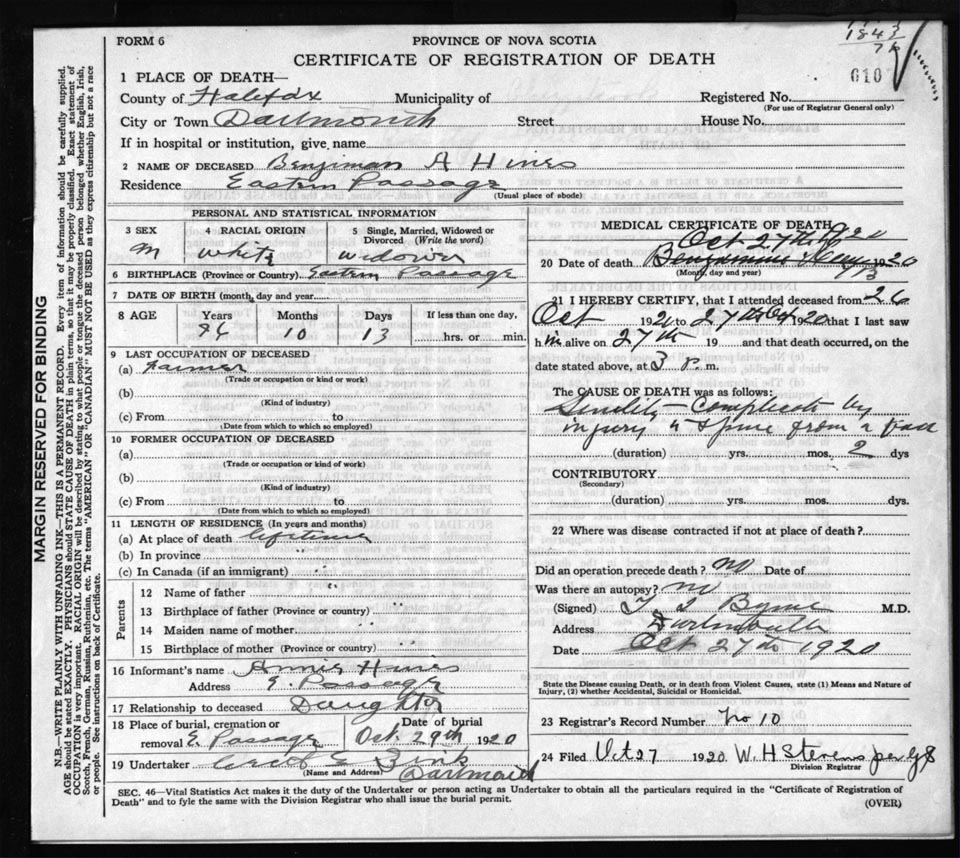 1843
FORM 6
PROVINCE OF NOVA SCOTIA
CERTIFICATE OF REGISTRATION OF DEATH
1 PLACE OF DEATH—
County of Halifax Municipality of Registered No.
(For use of Registrar General only)
City or Town Dartmouth Street House No.
If in hospital or institution, give name
2 NAME OF DECEASED Benjiman A Hines
Residence Eastern Passage
(Usual place of abode)
PERSONAL AND STATISTICAL INFORMATION
3 SEX 4 RACIAL ORIGIN 5 Single, Married, Widowed or Divorced (Write the word)
M White Widower
6 BIRTHPLACE (Province or Country) Eastern Passage
7 DATE OF BIRTH (month, day and year)
8 AGE Years Months Days If less than one day,
10 13 hrs. or min.
9 LAST OCCUPATION OF DECEASED
(a) Farmer
(Trade or occupation or kind or work)
(b)
(Kind of industry)
(c) From to
(Date from which to which so employed)
10 FORMER OCCUPATION OF DECEASED
(a)
(Trade or occupation or kind of work)
(b)
(Kind of industry)
(c) From to
(Date from which to which so employed)
11 LENGTH OF RESIDENCE (In years and months)
(a) At place of death lifetime
(b) In province
(c) In Canada (if an immigrant) "
Parents
12 Name of father "
13 Birthplace of father (Province or country) "
14 Maiden name of mother "
15 Birthplace of mother (Province or country) "
16 Informant's name Annie Hines
Address E. Passage
17 Relationship to deceased Daughter
18 Place of burial, cremation or Date of burial
removal E Passage Oct. 29th 1920
19 Undertaker Zink
(Name and Address) Dartmouth
MEDICAL CERTIFICATE OF DEATH
Oct 27th 1920
20 Date of death 1920
(Month, day and year)
21 I HEREBY CERTIFY, that I attended deceased from 26
Oct 1920 to 27th Oct 1920 that I last saw
h m alive on 27th 19 and that death occurred, on the
date stated above, at 3 p. m.
The CAUSE OF DEATH was as follows:
Senility - Complicated by
injury to spine from a fall
(duration) yrs. mos. 2 dys
CONTRIBUTORY
(Secondary)
(duration) yrs. mos. dys.
22 Where was disease contracted if not at place of death?
Did an operation precede death? no Date of
Was there an autopsy? no
(Signed) Byrne M.D.
Address Dartmouth
Date Oct 27th 1920
State the Disease causing Death, or in death from Violent Causes, state (1) Means and Nature of
Injury, (2) whether Accidental, Suicidal or Homicidal.
23 Registrar's Record Number No 10
24 Filed Oct 27 1920 W. H Stevens per
Division Registrar
SEC. 46—Vital Statistics Act makes it the duty of the Undertaker or person acting as Undertaker to obtain all the particulars required in the "Certificate of Registration of
Death" and to fyle the same with the Division Registrar who shall issue the burial permit.
(OVER)
MARGIN RESERVED FOR BINDING
N.B.—WRITE PLAINLY WITH UNFADING INK—THIS IS A PERMANENT RECORD. Every item of information should be carefully supplied.
AGE should be stated EXACTLY. PHYSICIANS should STATE CAUSE OF DEATH in plain terms, so that it may be properly classified. Exact statement of
OCCUPATION is very important. RACIAL ORIGIN will be described by stating to what people or tongue the deceased person belonged whether English, Irish,
Scotch, French, German, Russian, Ruthenian, etc. The terms "AMERICAN" or "CANADIAN" MUST NOT BE USED as they express citizenship but not a race
or people. See instructions on back of Certificate.